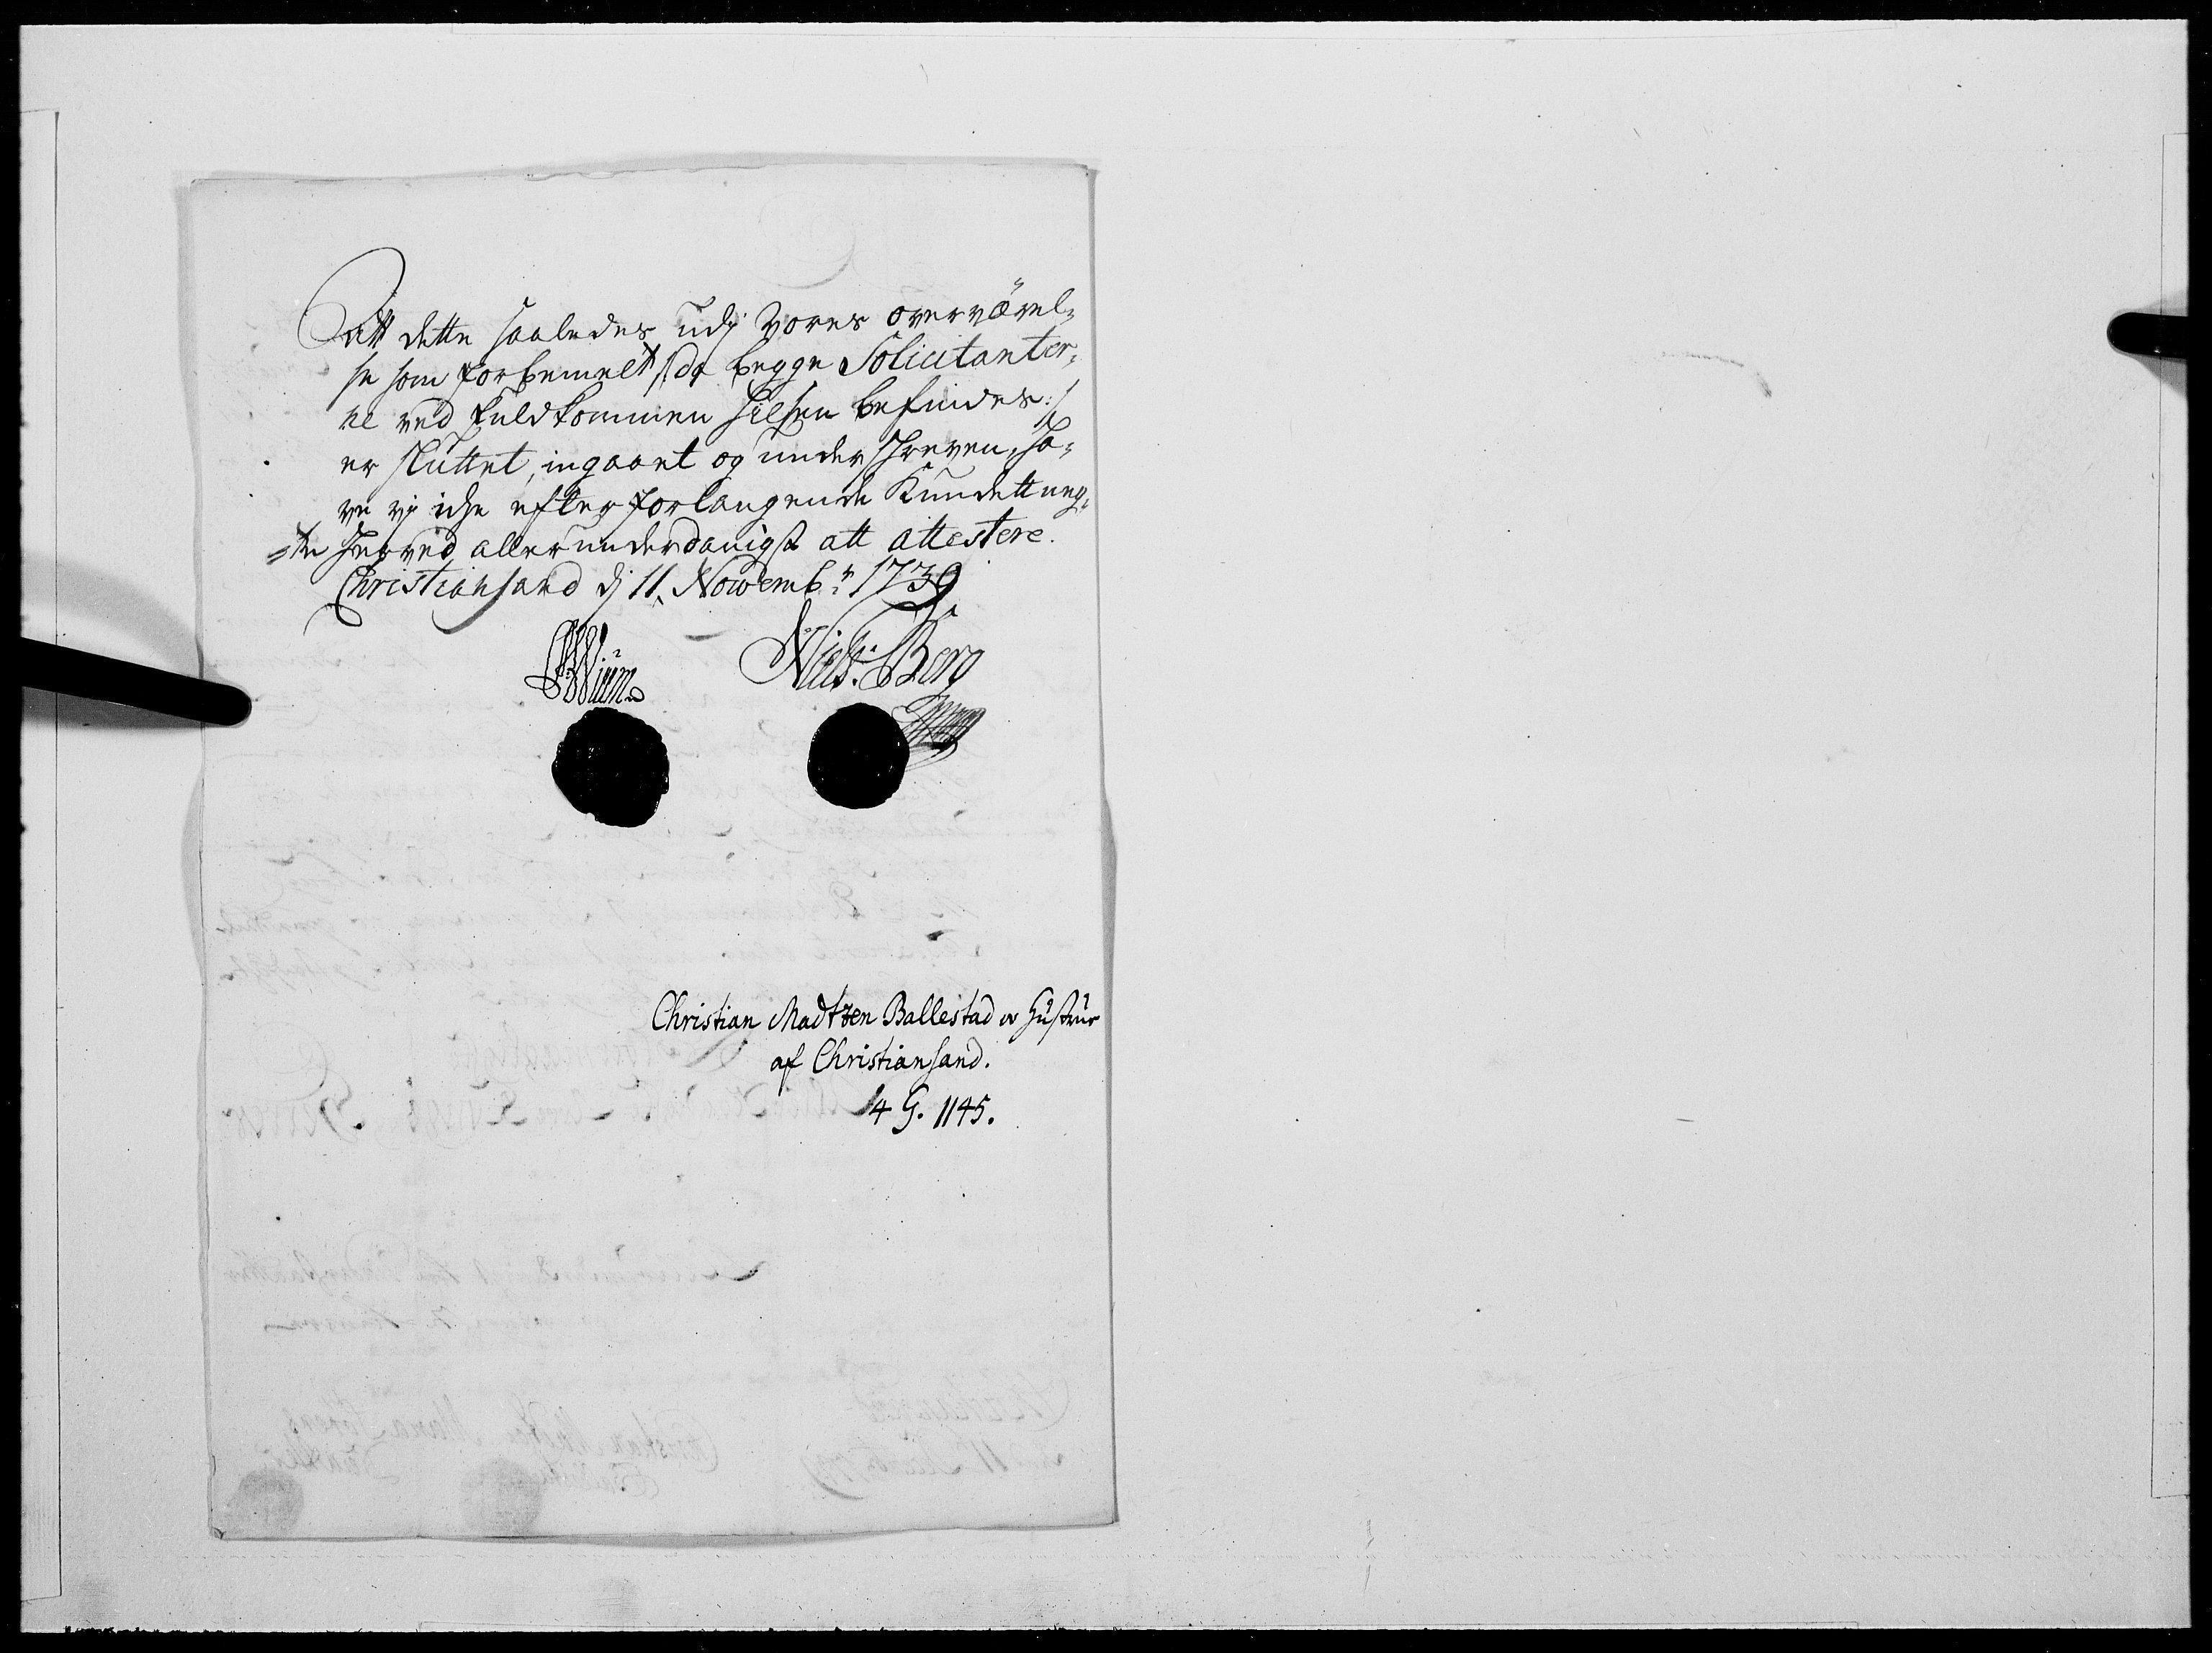 Att dette saaledes udj vores overværel-
se som forbemelt /: da begge Solicitanter-
ne ved fuldkommen Helsen befindes :/
er sluttet, ingaaet og underschreven, ha-
ve vj iche efter forlangende Kundet ung-
=te herved allerunderdanigst att attestere.
Christiansand dj 11 Novembr: 1739
Niels: Berg
Christian Madtzen Ballestad og Hustrue
af Christiansand.
4 G. 1145.